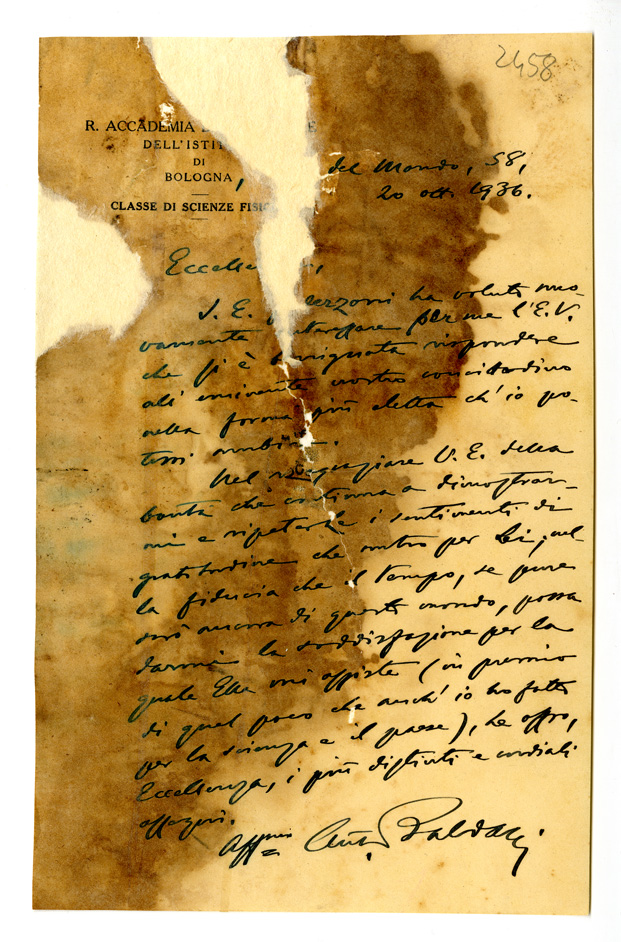 2458
R. ACCADEMIA D E
DELL'ISTIT
DI
BOLOGNA
CLASSE DI SCIENZE FISI
del Mondo, 58,
20 ott. 1936.
Eccelle
S. E. erzoni ha voluto nuo-
vamente per me l'E.V.
che si è benignata rispondere
all' eminente nostro concittadino
nella forma più eletta ch' io po-
tessi ambire.
Nel ringraziare V. E. della
bontà che continua a dimostrar-
mi e ripeterle i sentimenti di
gratitudine che nutro per Lei, nel-
la fiducia che il tempo, se pure
sarò ancora di questo mondo, possa
darmi la soddisfazione per la
quale Ella mi assiste (in premio
di quel poco che anch' io ho fatto
per la scienza e il paese), Le offro,
Eccellenza, i più distinti e cordiali
ossequi.
Aff.mo Ant. Baldacci